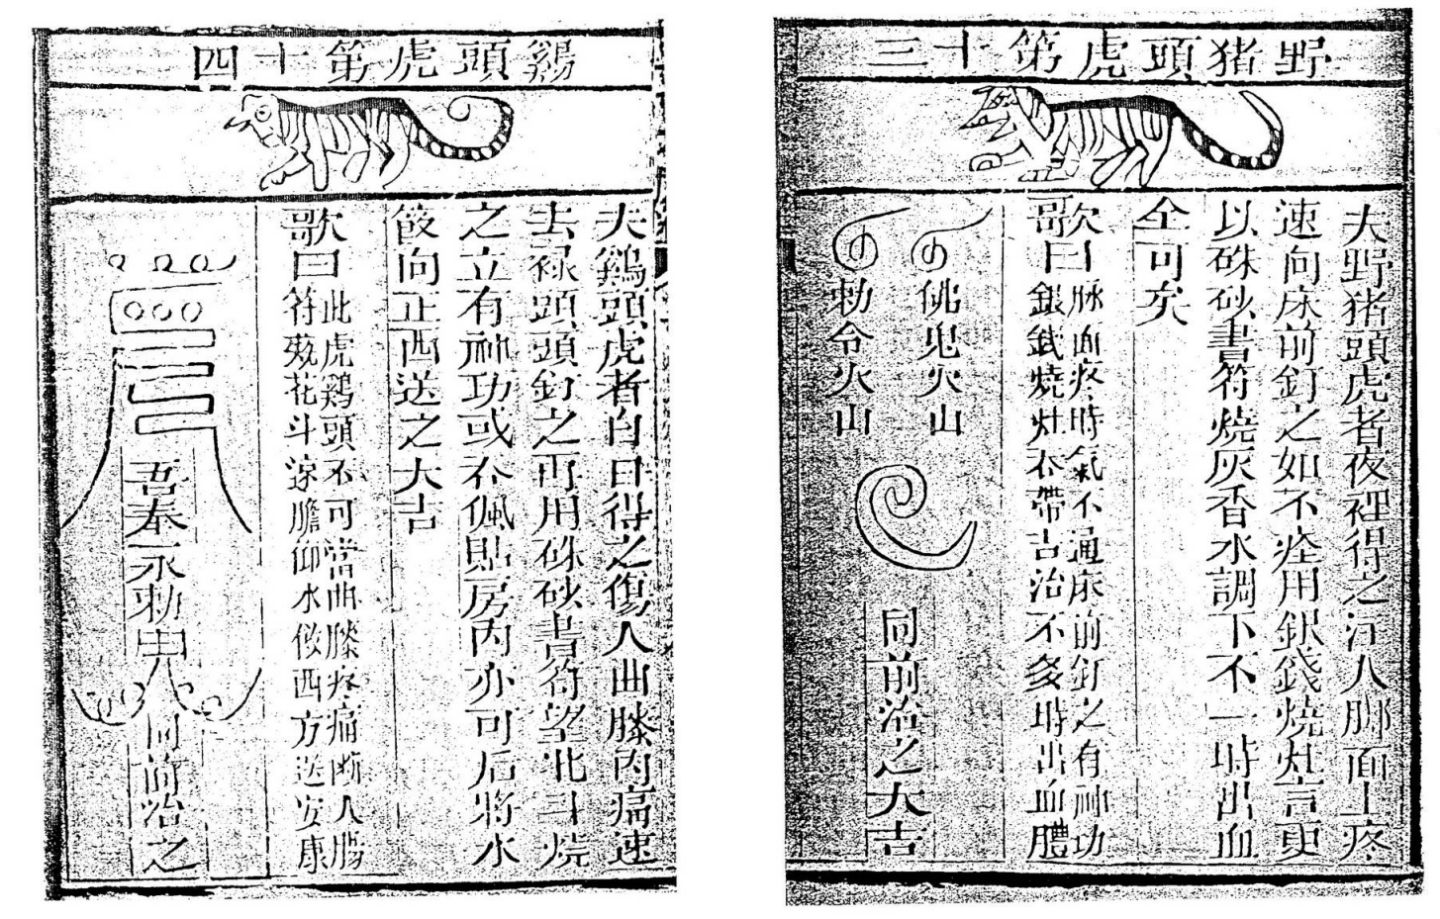 野猪頭虎第十三
夫野猪頭虎者夜裡得之注人脚面上疼
速向床前釘之如不痊用銀錢燒灶言更
以硃砂書符燒灰香水調下不一時出血
全可矣
歌曰
欠脉血疼時氣不通床前釘之有神功
銀錢燒灶不帶吉治不多時出血體
佛鬼火山
勅令火山
同前治之大吉
鷄頭虎第十四
夫鷄頭虎者白日得之傷人曲膝内痛速
去禄頭頭釘之再用硃砂書符望北斗燒
之立有神功或不佩貼房内亦可后將水
飯向正西送之大吉
歌曰
此虎鷄頭不可當曲膝疼痛断人腸
符殘花斗遠膽仰水飯西方送安康
吾奉永勅
同前治之